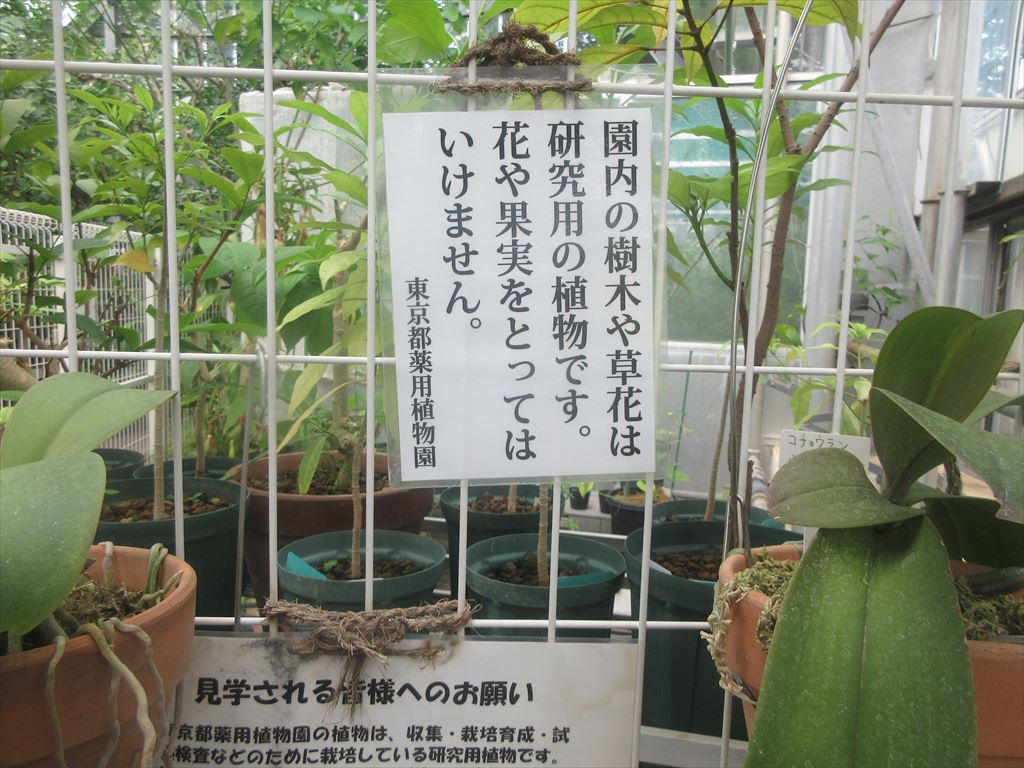 園内の樹木や草花は
研究用の植物です。
花や果実をとっては
いけません。
東京都薬用植物園
コチョウラン
見学される皆様へのお願い
京都薬用植物園の植物は、収集・栽培育成・試
検査などのために栽培している研究用植物です。